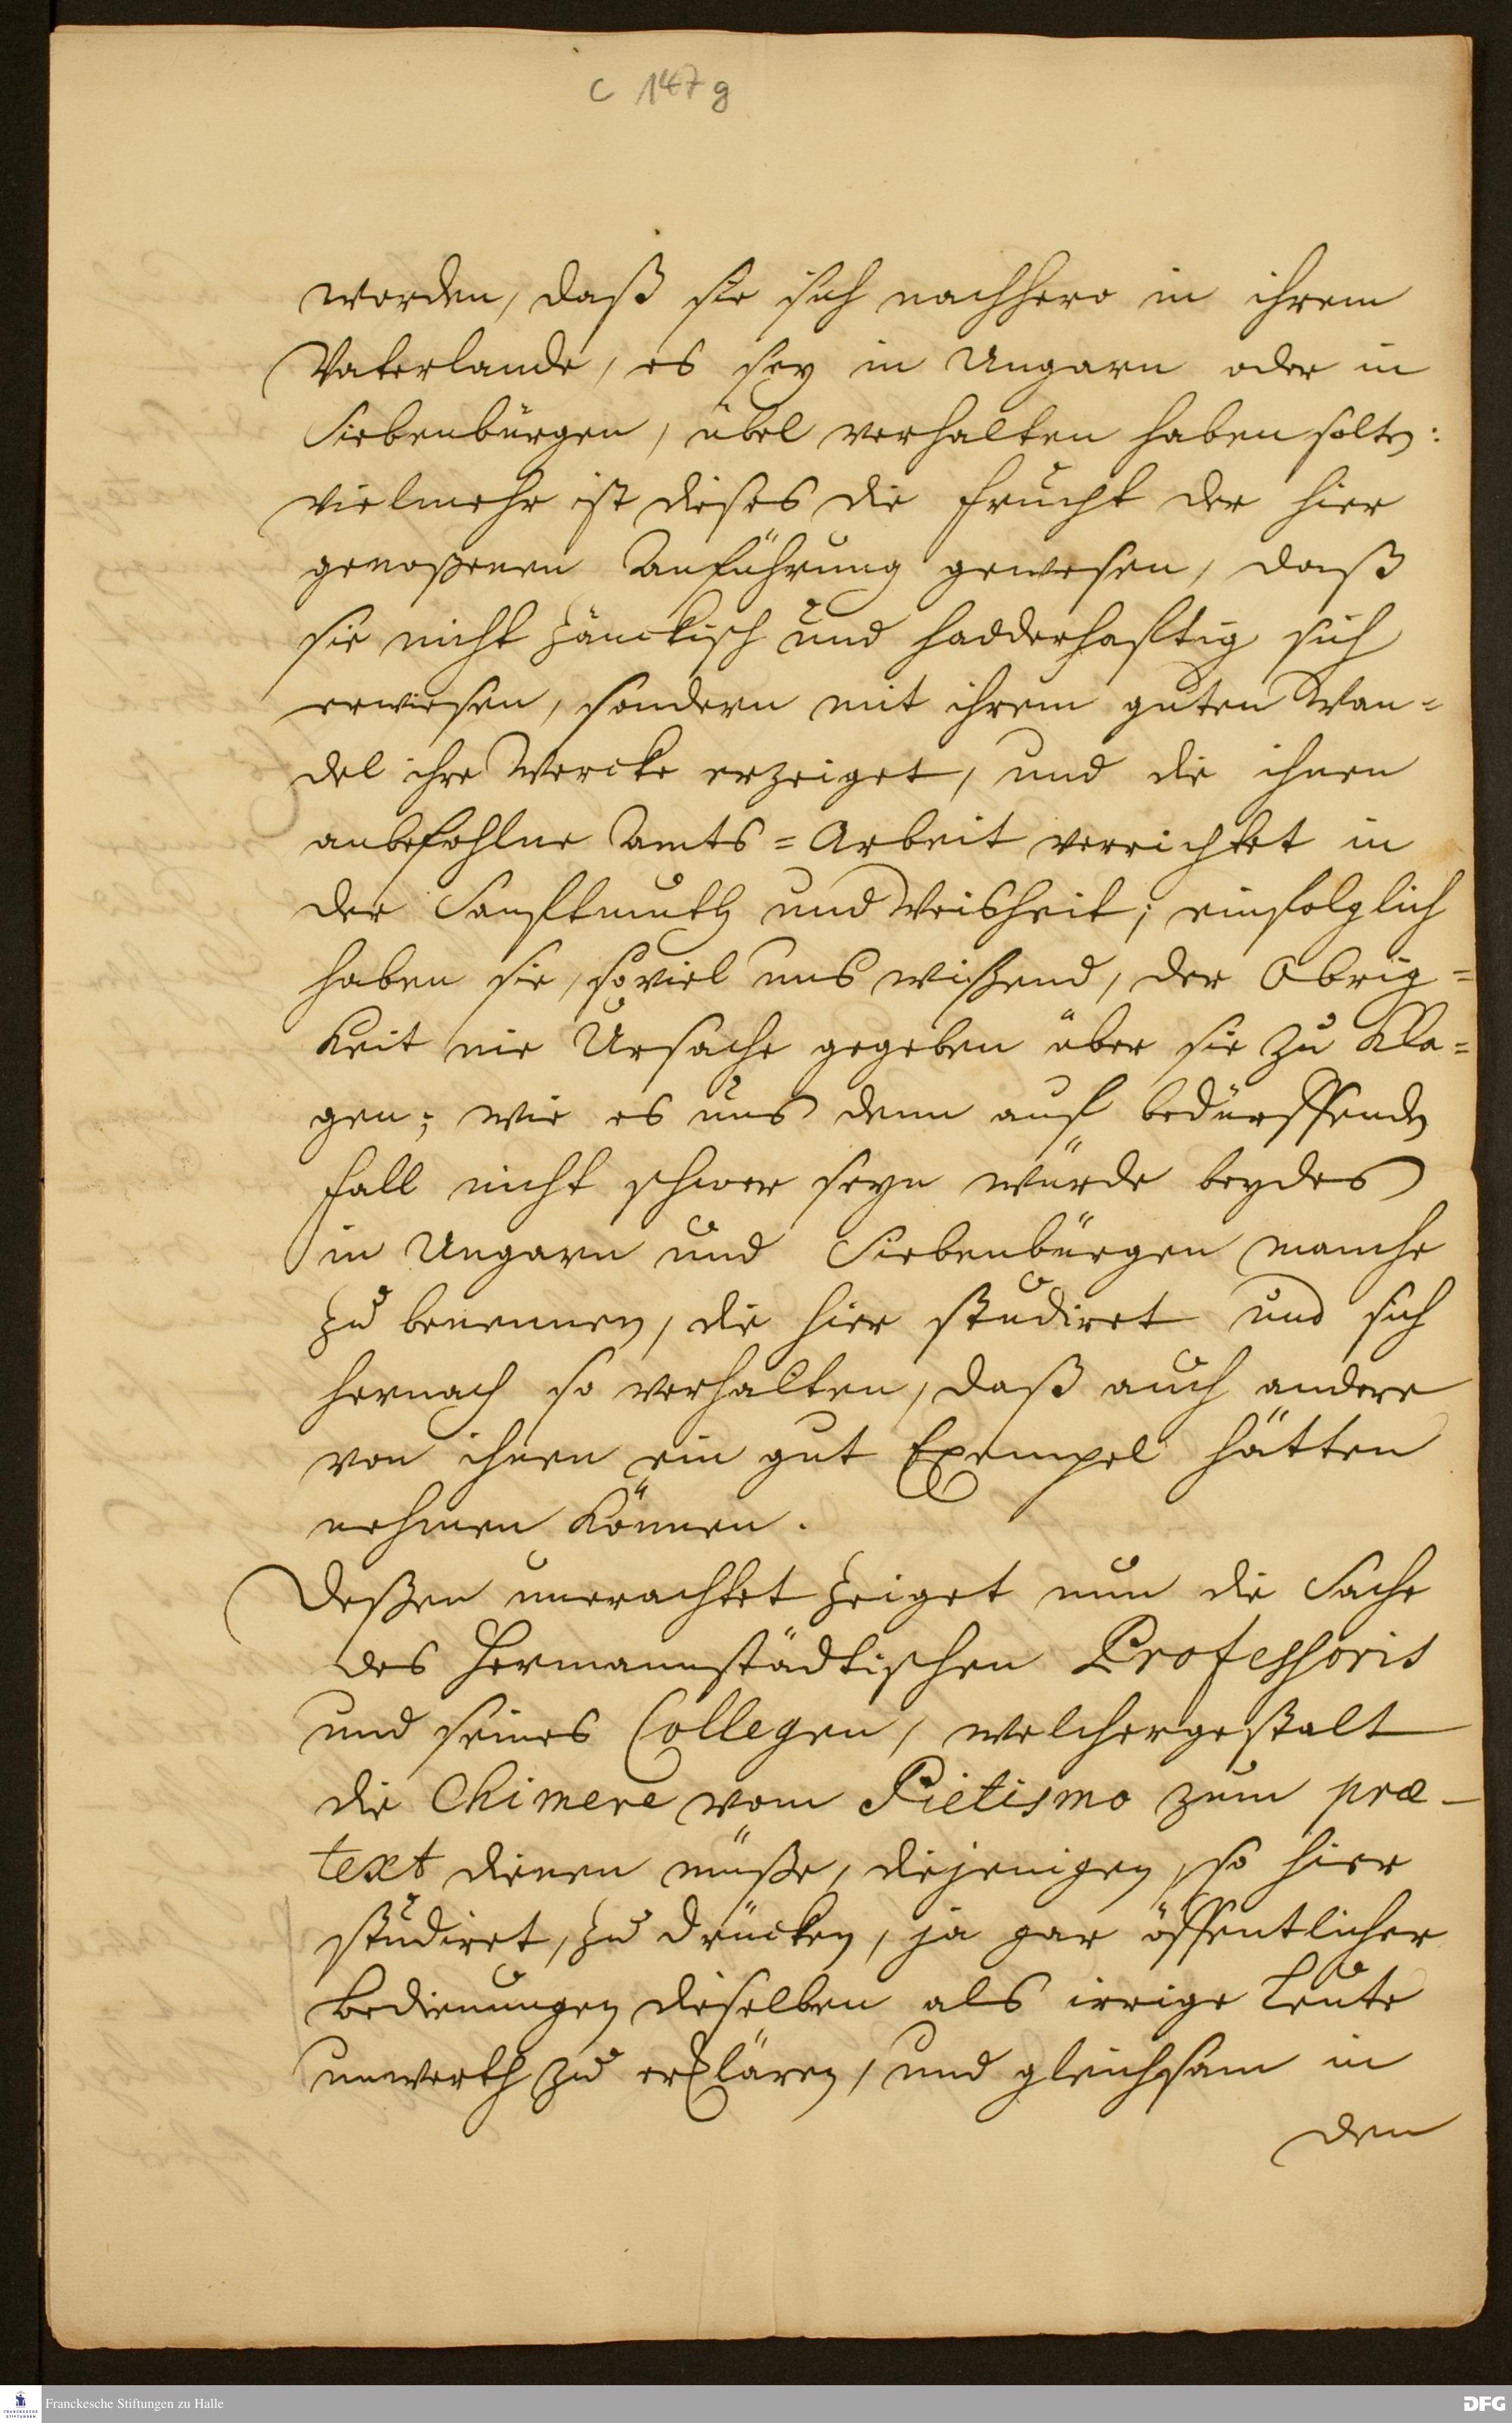 c 147 g
worden, daß sie sich nachhero in ihrem
Vaterlande, es sey in Ungarn oder in
Siebenbürgen, übel verhalten haben solten:
vielmehr ist dieses die Frucht der hier
genoßenen Anführung gewesen, daß
sie nicht zänckisch und hadderhafftig sich
erwiesen, sondern mit ihrem guten Wan=
del ihre Wercke erzeiget, und die ihnen
anbefohlne Amts=Arbeit verrichtet in
der Sanfftmuth und Weisheit; einfolglich
haben sie, soviel uns wißend, der Obrig=
keit nie Ursache gegeben über sie zu kla=
gen; wie es uns denn auf bedürffenden
Fall nicht schwer seyn würde beydes
in Ungarn und Siebenbürgen manche
zu benennen, die hier studiret und sich
hernach so verhalten, daß auch andere
von ihnen ein gut Exempel hätten
nehmen können.
Deßen unerachtet zeiget nun die Sache
des Hermannstädtischen Professoris
und seines Collegen, welchergestalt
die Chimere vom Pietismo zum præ-
text dienen müße, diejenigen, so hier
studiret, zu drücken, ja gar öffentlicher
Bedienungen dieselben als irrige Leute
unwerth zu erklären, und gleichsam in
den
Franckesche Stiftungen zu Halle
FRANCKESCHE STIFTUNGEN
DFG